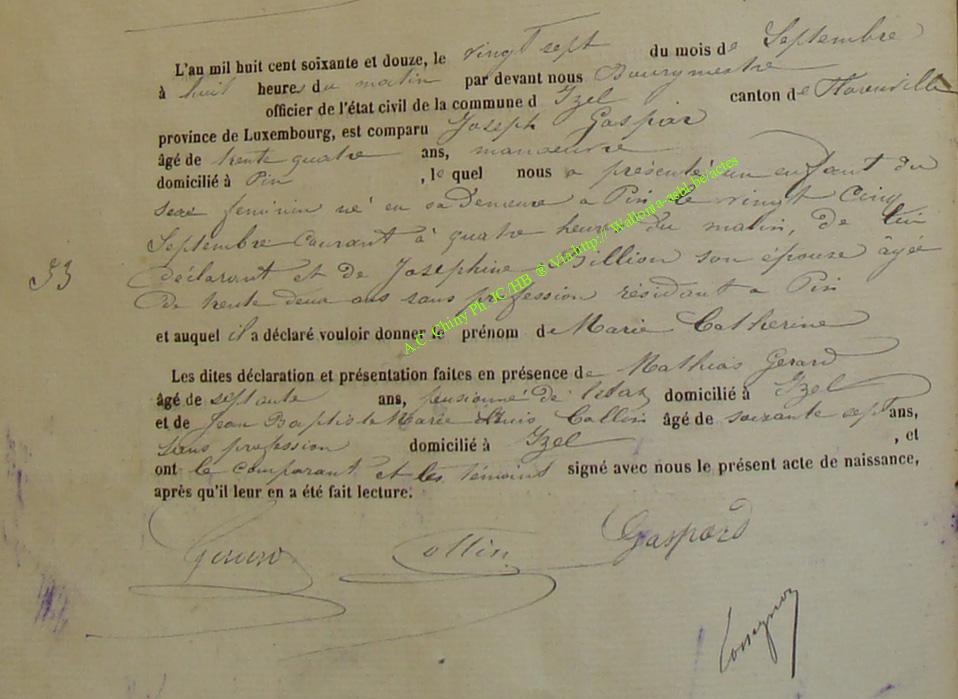 L'an mil huit cent soixante et douze, le vingt sept du mois de Septembre
à huit heures du matin par devant nous Bourgmestre
officier de l'état civil de la commune d Izel canton de Florenville
province de Luxembourg, est comparu Joseph Gaspar
âgé de trente quatre ans, manoeuvre
domicilié à Pin , le quel nous a présenté un enfant du
sexe feminin né en sa demeure a Pin le vingt cinq
Septembre courant à quatre heures du matin, de lui
déclarant et de Josephine Billion son épouse âgée
de trente deux ans sans profession résidant a Pin
53
et auquel il a déclaré vouloir donner le prénom de Marie Catherine
Les dites déclaration et présentation faites en présence de Mathias Gerard
âgé de septante ans, pensionné de l'état domicilié à Izel
et de Jean Baptiste Marie Collin âgé de soixante sept ans,
sans profession domicilié à Izel , et
ont le comparant et les témoins signé avec nous le présent acte de naissance,
après qu'il leur en a été fait lecture.
Gerard Collin Gaspard
A.C. Chiny Ph JC/HB @ Via http://Wallonia-asbl.be/actes